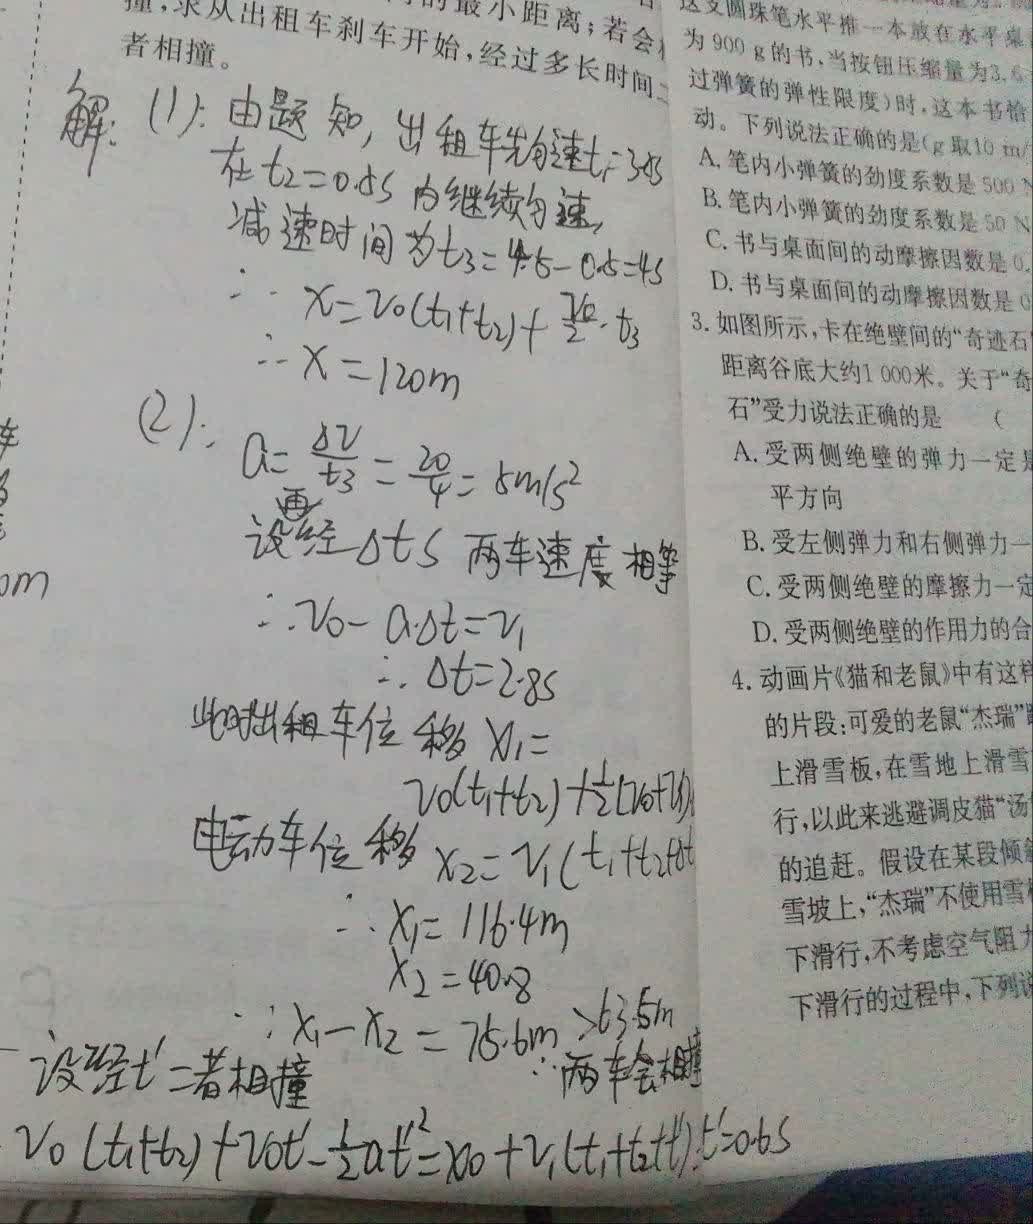 的最小距离;若会
撞,求从出租车刹车开始,经过多长时间二
者相撞。
解: (1): 由题知, 出租车先匀速t₁=3.5s
在t₂=0.5s 内继续匀速,
减速时间为t₃=4.5-0.5=4s
∴ x=v₀(t₁+t₂)+v₀/2·t₃
∴ x=120m
(2):
a=Δv/t₃=20/4=5m/s²
设再经Δts 两车速度相等
∴v₀-a·Δt=v₁
∴ Δt=2.8s
此时出租车位移 x₁=
v₀(t₁+t₂)+½(v₀+v₁)
电动车位移 x₂=v₁(t₁+t₂+Δt
∴ x₁=116.4m
x₂=40.8
∴ x₁-x₂=75.6m >63.5m
∴两车会相撞
设经t′二者相撞
v₀(t₁+t₂)+v₀t′-½at′²=x₀+v₁(t₁+t₂+t′) t′=0.6s
车
0m
这支圆珠笔水平推一本放在水平桌
为 900 g 的书,当按钮压缩量为3.
过弹簧的弹性限度)时,这本书恰
动。下列说法正确的是(g 取10 m/
A. 笔内小弹簧的劲度系数是 500 N
B. 笔内小弹簧的劲度系数是 50 N
C. 书与桌面间的动摩擦因数是 0.
D. 书与桌面间的动摩擦因数是
3. 如图所示,卡在绝壁间的“奇迹石
距离谷底大约1 000米。关于“奇
石”受力说法正确的是 (
A. 受两侧绝壁的弹力一定是
平方向
B. 受左侧弹力和右侧弹力一
C. 受两侧绝壁的摩擦力一定
D. 受两侧绝壁的作用力的合
4. 动画片《猫和老鼠》中有这样
的片段:可爱的老鼠“杰瑞”
上滑雪板,在雪地上滑雪
行,以此来逃避调皮猫“汤
的追赶。假设在某段倾斜
雪坡上,“杰瑞”不使用雪
下滑行,不考虑空气阻力
下滑行的过程中,下列说